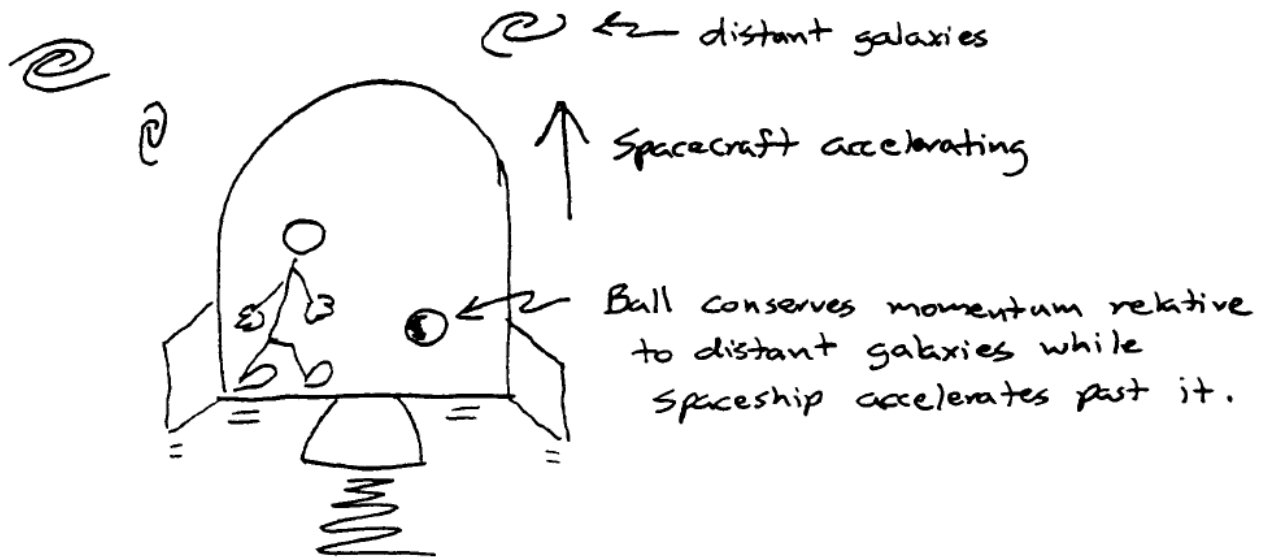 distant galaxies
Spacecraft accelerating
Ball conserves momentum relative
to distant galaxies while
spaceship accelerates past it.